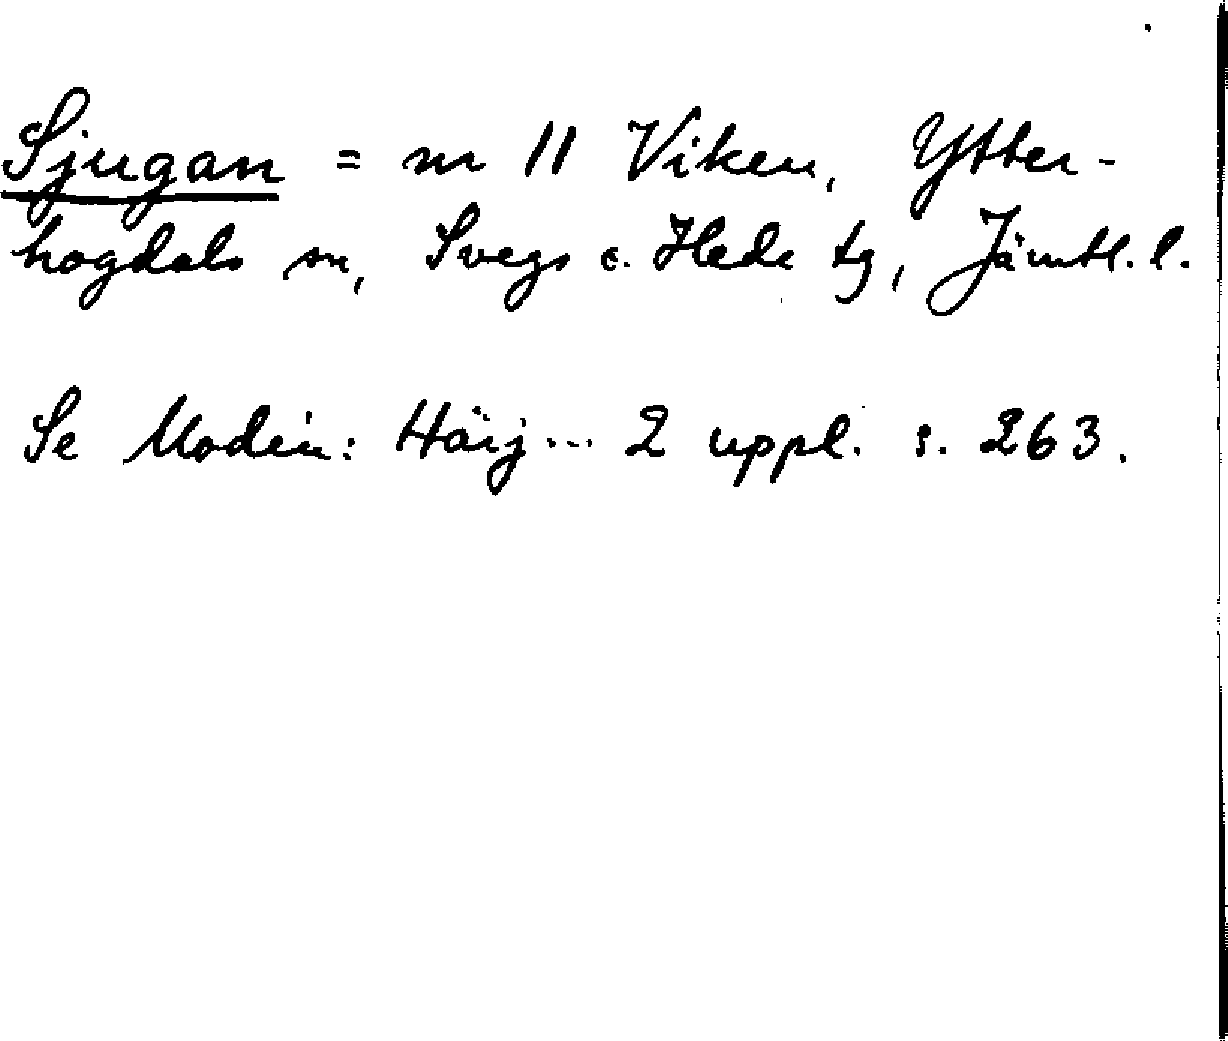 Sjugan = nr 11 Viken, Ytter-
hogdals sn, Svegs o. Hede tg, Jämtl. l.
Se Modin: Härj... 2 uppl. s. 263.